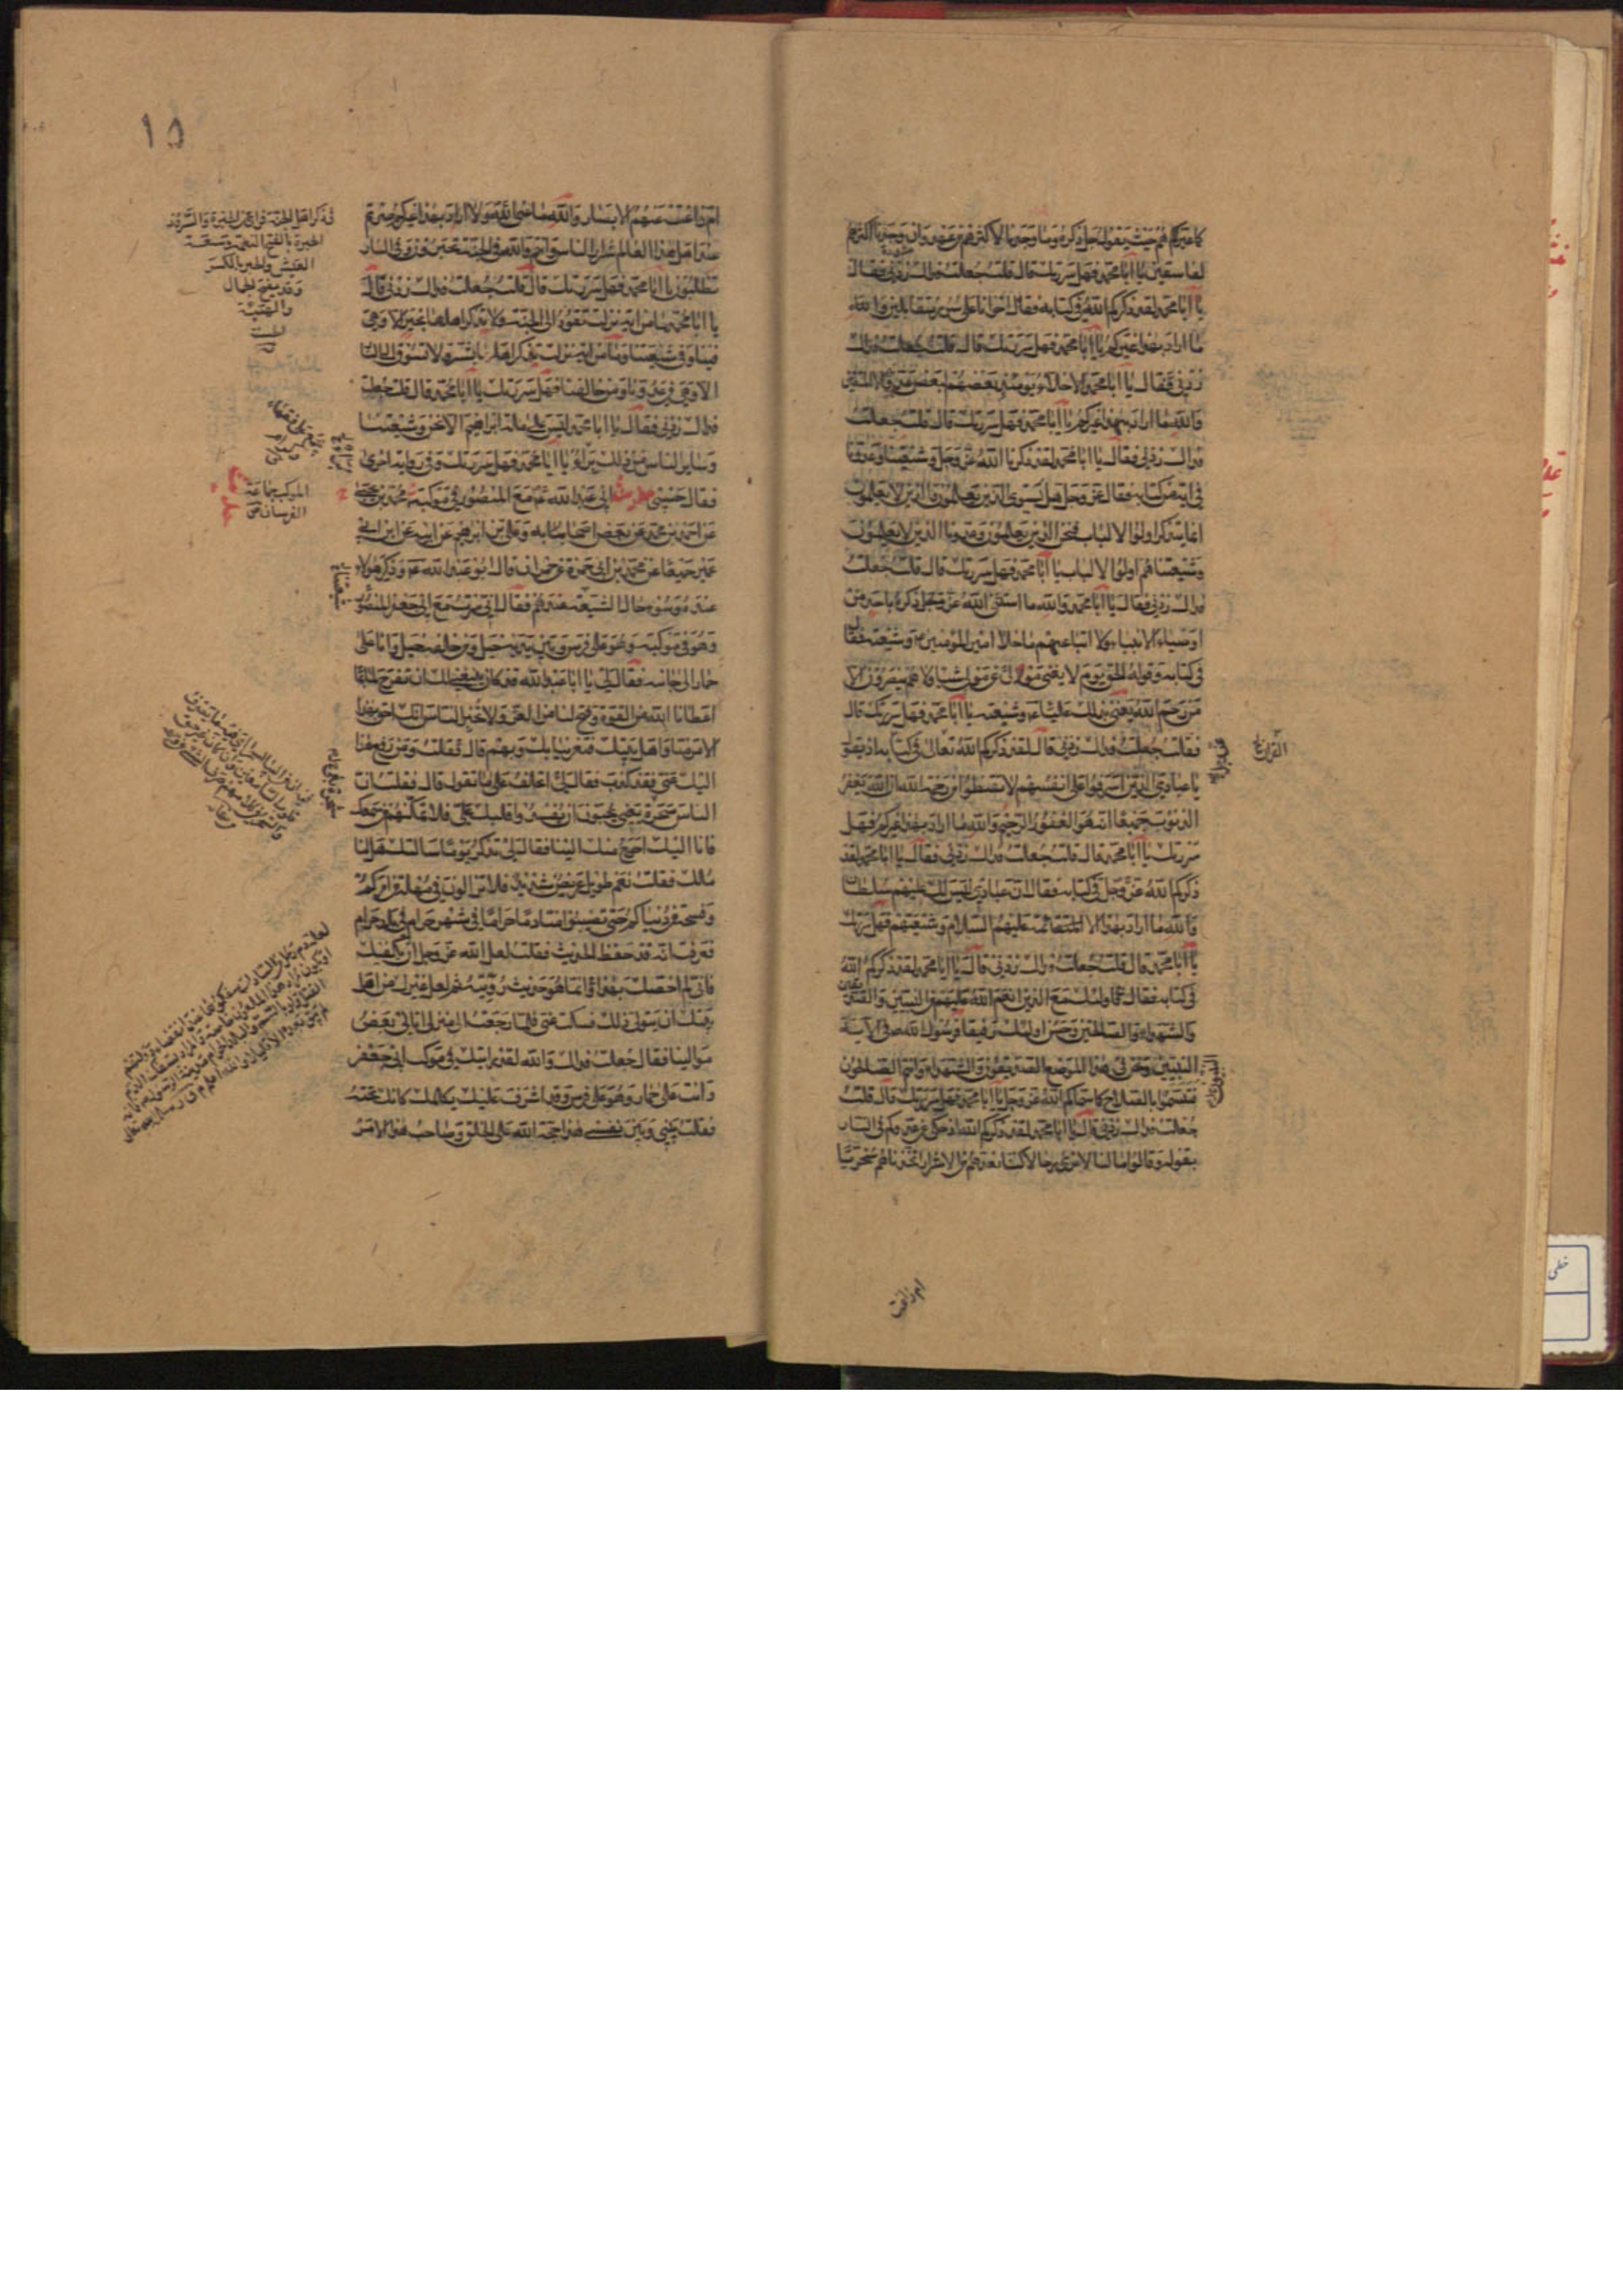 كما عيركم هم حيث يقول جل ذكره وما وجدنا لأكثرهم من عهد وان وجدنا اكثرهم
لفاسقين يا ابا محمد فهل سررتك قال قلت جعلت فداك زدنى فقال
يا ابا محمد لقد ذكركم الله فى كتابه فقال اخوانا على سرر متقابلين والله
ما اراد بهذا غيركم يا ابا محمد فهل سررتك قال قلت جعلت فداك
زدنى فقال يا ابا محمد الأخلاء يومئذ بعضهم لبعض عدو الا المتقين
والله ما اراد بهذا غيركم يا ابا محمد فهل سررتك قال قلت جعلت
فداك زدنى فقال يا ابا محمد لقد ذكرنا الله عز وجل وشيعتنا وعدونا
فى آية من كتابه فقال عز وجل هل يستوى الذين يعلمون والذين لا يعلمون
انما يتذكر اولوا الالباب فنحن الذين يعلمون وعدونا الذين لا يعلمون
وشيعتنا هم اولوا الالباب يا ابا محمد فهل سررتك قال قلت جعلت
فداك زدنى فقال يا ابا محمد والله ما استثنى الله عز وجل ذكره باحد من
اوصياء الانبياء ولا اتباعهم ما خلا امير المؤمنين وشيعته فقال
فى كتابه وقوله الحق يوم لا يغنى مولى عن مولى شيئا ولا هم ينصرون الا
من رحم الله يعنى بذلك عليا وشيعته يا ابا محمد فهل سررتك قال
فقلت جعلت فداك زدنى قال لقد ذكركم الله تعالى فى كتابه اذ يقول
يا عبادى الذين اسرفوا على انفسهم لا تقنطوا من رحمة الله ان الله يغفر
الذنوب جميعا انه هو الغفور الرحيم والله ما اراد بهذا غيركم فهل
سررتك يا ابا محمد قال قلت جعلت فداك زدنى فقال يا ابا محمد لقد
ذكركم الله عز وجل فى كتابه فقال ان عبادى ليس لك عليهم سلطان
والله ما اراد بهذا الا الائمة عليهم السلام وشيعتهم فهل سررتك
يا ابا محمد قال قلت جعلت فداك زدنى قال يا ابا محمد لقد ذكركم الله
فى كتابه فقال فاولئك مع الذين انعم الله عليهم من النبيين والصديقين
والشهداء والصالحين وحسن اولئك رفيقا فرسول الله ص فى الآية
النبيين ونحن فى هذا الموضع الصديقون والشهداء وانتم الصالحون
فتسموا بالصلاح كما سماكم الله عز وجل يا ابا محمد فهل سررتك قال قلت
جعلت فداك زدنى قال يا ابا محمد لقد ذكركم الله اذ حكى عن عدوكم فى النار
بقوله وقالوا ما لنا لا نرى رجالا كنا نعدهم من الاشرار اتخذناهم سخريا
ام زاغت
١٥
ام زاغت عنهم الابصار والله ما عنى الله ولا اراد بهذا غيركم صرتم
عند اهل هذا العالم شرار الناس وانتم والله فى الجنة تحبرون وفى النار
تطلبون يا ابا محمد فهل سررتك قال قلت جعلت فداك زدنى قال
يا ابا محمد ما من آية نزلت تقود الى الجنة ولا تذكر اهلها بخير الا وهى
فينا وفى شيعتنا وما من آية نزلت تذكر اهلها بشر ولا تسوق الى النار
الا وهى فى عدونا ومن خالفنا فهل سررتك يا ابا محمد قال قلت جعلت
فداك زدنى فقال يا ابا محمد ليس على ملة ابراهيم الا نحن وشيعتنا
وساير الناس من ذلك براء يا ابا محمد فهل سررتك وفى رواية اخرى
فقال حسبى حديث ابى عبد الله ع مع المنصور فى موكبه محمد بن يحيى
عن احمد بن محمد عن بعض اصحابه وعلى بن ابراهيم عن ابيه عن ابن ابى
عمير جميعا عن محمد بن ابى حمزة عن حمران قال قال ابو عبد الله ع وذكر هؤلاء
عنده وسوء حال الشيعة عندهم فقال انى سرت مع ابى جعفر المنصور
وهو فى موكبه وهو على فرس وبين يديه خيل ومن خلفه خيل وانا على
حمار الى جانبه فقال لى يا ابا عبد الله قد كان ينبغى لك ان تفرح بما
اعطانا الله من القوة وفتح لنا من العز ولا تخبر الناس انك احق بهذا
الامر منا واهل بيتك فتغرينا بك وبهم قال فقلت ومن رفع هذا
اليك عنى فقد كذب فقال لى اتحلف على ما تقول قال فقلت ان
الناس سحرة يعنى يحبون ان يفسدوا قلبك على فلا تمكنهم من سمعك
فانا اليك احوج منك الينا فقال لى تذكر يوم سالتك هل لنا
ملك فقلت نعم طويل عريض شديد فلا تزالون فى مهلة من امركم
وفسحة من دنياكم حتى تصيبوا منا دما حراما فى شهر حرام فى بلد حرام
فعرفت انه قد حفظ الحديث فقلت لعل الله عز وجل ان يكفيك
فانى لم اخصك بهذا وانما هو حديث رويته ثم لعل غيرك من اهل
بيتك ان يتولى ذلك فسكت عنى فلما رجعت الى منزلى اتانى بعض
موالينا فقال جعلت فداك والله لقد رايتك فى موكب ابى جعفر
وانت على حمار وهو على فرس وقد اشرف عليك يكلمك كانك تحته
فقلت بينى وبين نفسى هذا حجة الله على الخلق وصاحب هذا الامر
الحبرة بالفتح النعمة وسعة
العيش
الموكب جماعة
الفرسان